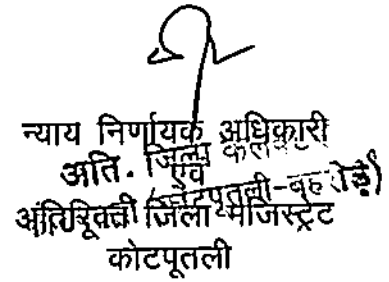 न्याय निर्णायक अधिकारी
अति. जिला कलेक्टर
एवं
(कोटपूतली-बहरोड़)
अतिरिक्त जिला मजिस्ट्रेट
कोटपूतली